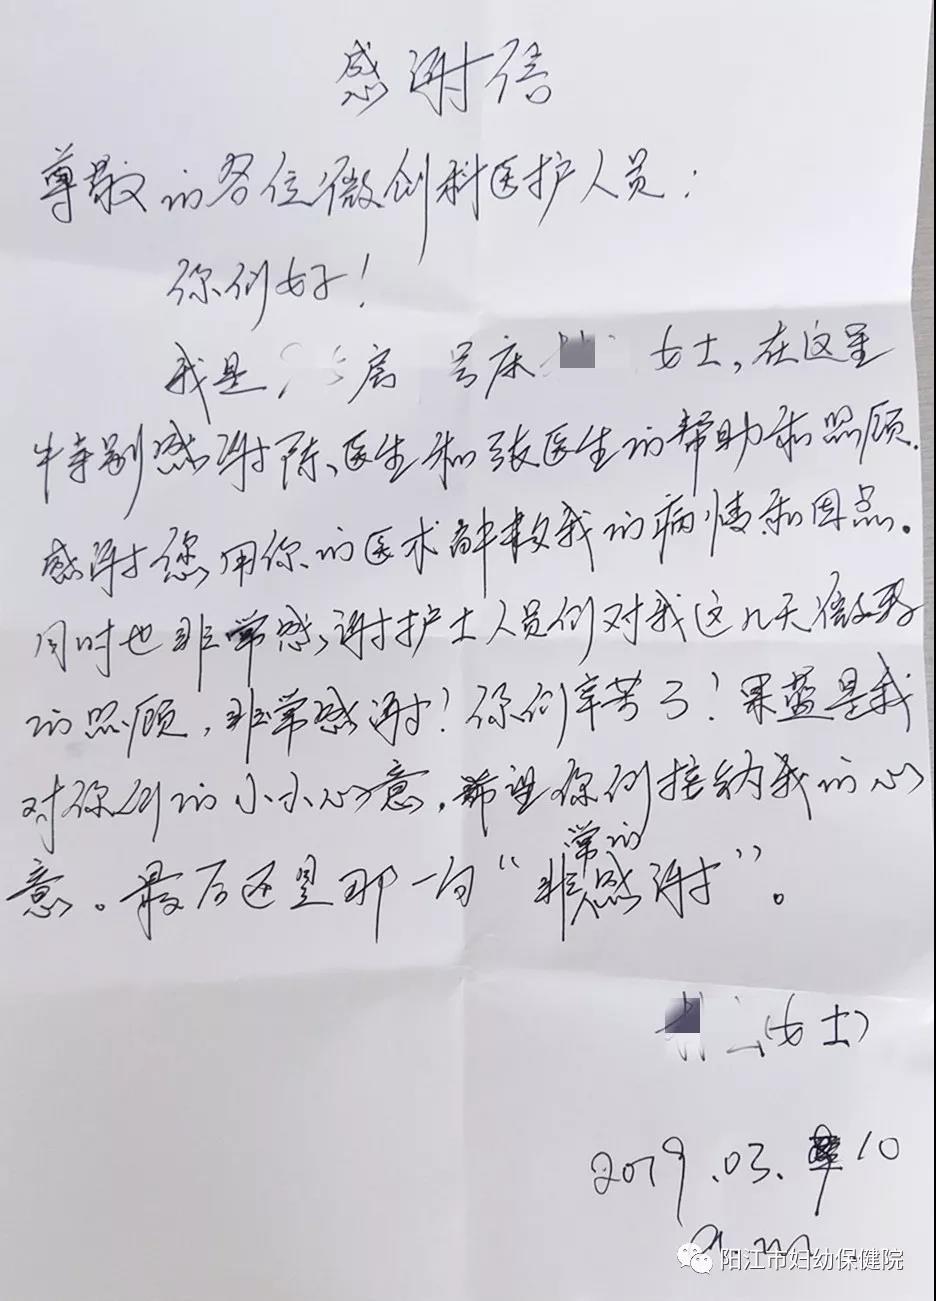 感谢信
尊敬的各位微创科医护人员：
你们好！
我是 房 号床 女士，在这里
特别感谢陈医生和张医生的帮助和照顾.
感谢您用你的医术解救我的病情和困点。
同时也非常感谢护士人员们对我这几天微致
的照顾，非常感谢！你们辛苦了！果蓝是我
对你们的小小心意，希望你们接纳我的心
意。最后还是那一句“非常的感谢”。
(女士)
2019.03.10
a.m.
阳江市妇幼保健院